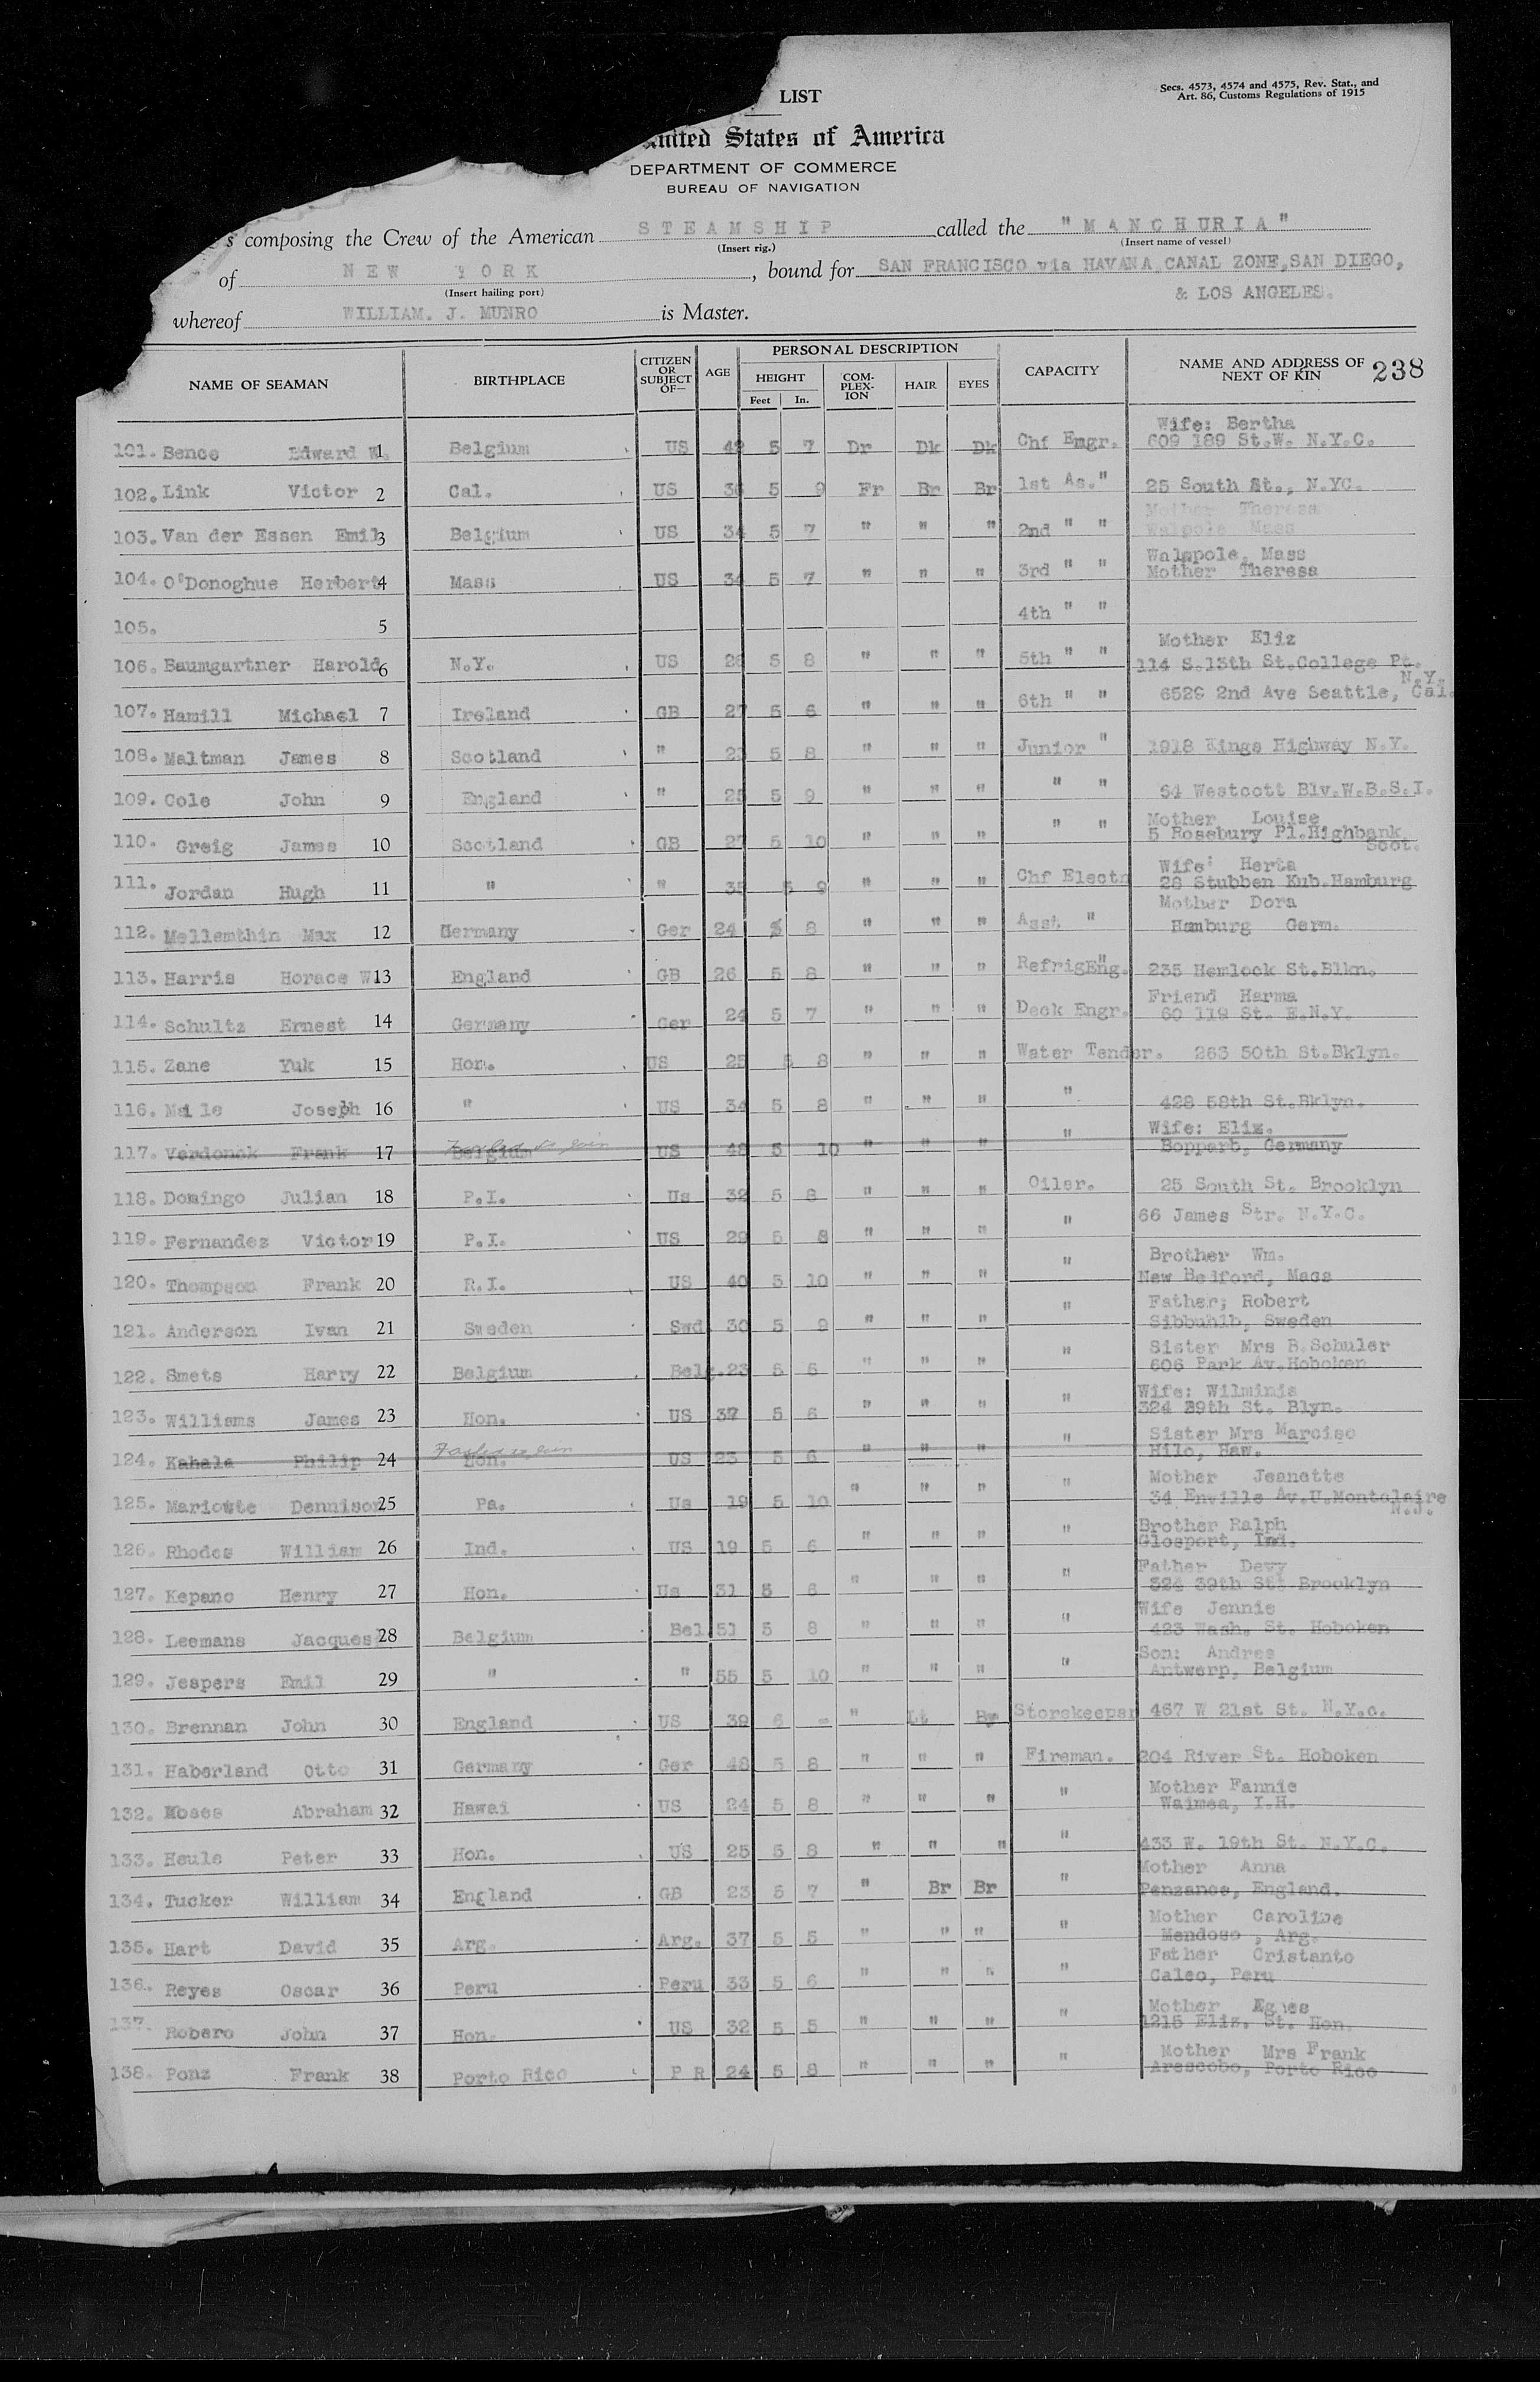 LIST
Secs. 4573, 4574 and 4575, Rev. Stat., and
Art. 86, Customs Regulations of 1915
United States of America
DEPARTMENT OF COMMERCE
BUREAU OF NAVIGATION
s composing the Crew of the American STEAMSHIP called the "MANCHURIA"
(Insert rig.) (Insert name of vessel)
of NEW YORK, bound for SAN FRANCISCO via HAVANA CANAL ZONE, SAN DIEGO,
(Insert hailing port) & LOS ANGELES.
whereof WILLIAM. J. MUNRO is Master.
NAME OF SEAMAN BIRTHPLACE CITIZEN OR SUBJECT OF— AGE PERSONAL DESCRIPTION HEIGHT Feet In. COM-PLEX-ION HAIR EYES CAPACITY NAME AND ADDRESS OF NEXT OF KIN 238
Wife: Bertha
101. Bence Edward W. 1 Belgium US 42 5 7 Dr Dk Dk Chf Engr. 609 189 St.W. N.Y.C.
102. Link Victor 2 Cal. US 36 5 9 Fr Br Br 1st As." 25 South St., N.YC.
Mother Theresa
103. Van der Essen Emil 3 Belgium US 34 5 7 " " " 2nd " " Walpole Mass
Walpole, Mass
104. O'Donoghue Herbert 4 Mass US 34 5 7 " " " 3rd " " Mother Theresa
105. 5 4th " "
Mother Eliz
106. Baumgartner Harold 6 N.Y. US 26 5 8 " " " 5th " " 114 S.13th St.College Pt.
N.Y.
107. Hamill Michael 7 Ireland GB 27 5 6 " " " 6th " " 6529 2nd Ave Seattle, Cal.
108. Maltman James 8 Scotland " 23 5 8 " " " Junior " 1918 Kings Highway N.Y.
109. Cole John 9 England " 25 5 9 " " " " " 54 Westcott Blv.W.B.S.I.
Mother Louise
110. Greig James 10 Scotland GB 27 5 10 " " " " " 5 Rosebury Pl.Highbank
Scot.
Wife: Herta
111. Jordan Hugh 11 " " 35 5 9 " " " Chf Electn 20 Stubben Kub.Hamburg
Mother Dora
112. Mellemthin Max 12 Germany Ger 24 5 8 " " " Asst. " Hamburg Germ.
113. Harris Horace W. 13 England GB 26 5 8 " " " RefrigEng. 235 Hemlock St.Blkn.
Friend Harma
114. Schultz Ernest 14 Germany Ger 24 5 7 " " " Deck Engr. 60 119 St. E.N.Y.
115. Zane Yuk 15 Hon. US 25 5 8 " " " Water Tender. 263 50th St.Bklyn.
116. Maile Joseph 16 " US 34 5 8 " " " " 428 58th St.Bklyn.
Failed to join Wife: Eliz.
117. Verdonck Frank 17 Belgium US 48 5 10 " " " " Boppard, Germany
118. Domingo Julian 18 P.I. Us 32 5 8 " " " Oiler. 25 South St. Brooklyn
119. Fernandez Victor 19 P.I. US 29 5 8 " " " " 66 James Str. N.Y.C.
Brother Wm.
120. Thompson Frank 20 R.I. US 40 5 10 " " " " New Bedford, Mass
Father; Robert
121. Anderson Ivan 21 Sweden Swd 30 5 9 " " " " Sibbuhlb, Sweden
Sister Mrs B.Schuler
122. Smets Harry 22 Belgium Belg. 23 5 6 " " " " 606 Park Av.Hoboken
Wife: Wilminia
123. Williams James 23 Hon. US 37 5 6 " " " " 324 39th St. Blyn.
Failed to join Sister Mrs Marcise
124. Kahale Philip 24 Hon. US 23 5 6 " " " " Hilo, Haw.
Mother Jeanette
125. Mariotte Dennison 25 Pa. Us 19 5 10 " " " " 34 Enville Av.U.Montclaire
N.J.
Brother Ralph
126. Rhodes William 26 Ind. US 19 5 6 " " " " Glosport, Ind.
Father Devy
127. Kepano Henry 27 Hon. Us 31 5 6 " " " " 324 39th St. Brooklyn
Wife Jennie
128. Leemans Jacques 28 Belgium Bel 51 5 8 " " " " 423 Wash. St. Hoboken
Son: Andres
129. Jespers Emil 29 " " 55 5 10 " " " " Antwerp, Belgium
130. Brennan John 30 England US 39 6 - " Lt Br Storekeeper 467 W 21st St. N.Y.C.
131. Haberland Otto 31 Germany Ger 48 5 8 " " " Fireman. 204 River St. Hoboken
Mother Fannie
132. Moses Abraham 32 Hawai US 24 5 8 " " " " Waimea, I.H.
133. Heule Peter 33 Hon. US 25 5 8 " " " " 433 W. 19th St. N.Y.C.
Mother Anna
134. Tucker William 34 England GB 23 5 7 " Br Br " Penzance, England.
Mother Caroline
135. Hart David 35 Arg. Arg. 37 5 5 " " " " Mendoso , Arg.
Father Cristanto
136. Reyes Oscar 36 Peru Peru 33 5 6 " " " " Caleo, Peru
Mother Agnes
137. Robero John 37 Hon. US 32 5 5 " " " " 1215 Eliz. St. Hon.
Mother Mrs Frank
138. Ponz Frank 38 Porto Rico P R 24 5 8 " " " " Arescobo, Porto Rico